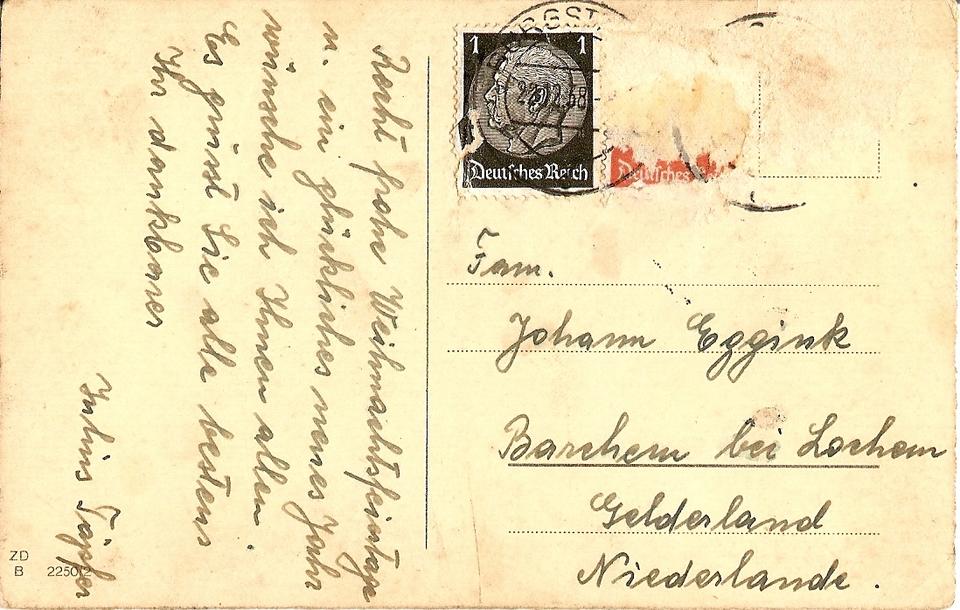 Recht frohe Weihnachtsfeiertage
u. ein glückliches neues Jahr
wünsche ich Ihnen allen.
Es grüsst Sie alle bestens
Ihr dankbarer
Julius
1 1
Deutsches Reich
Deutsches
Fam.
Johann Eggink
Barchem bei Lochem
Gelderland
Niederlande.
ZD
B 2250/2